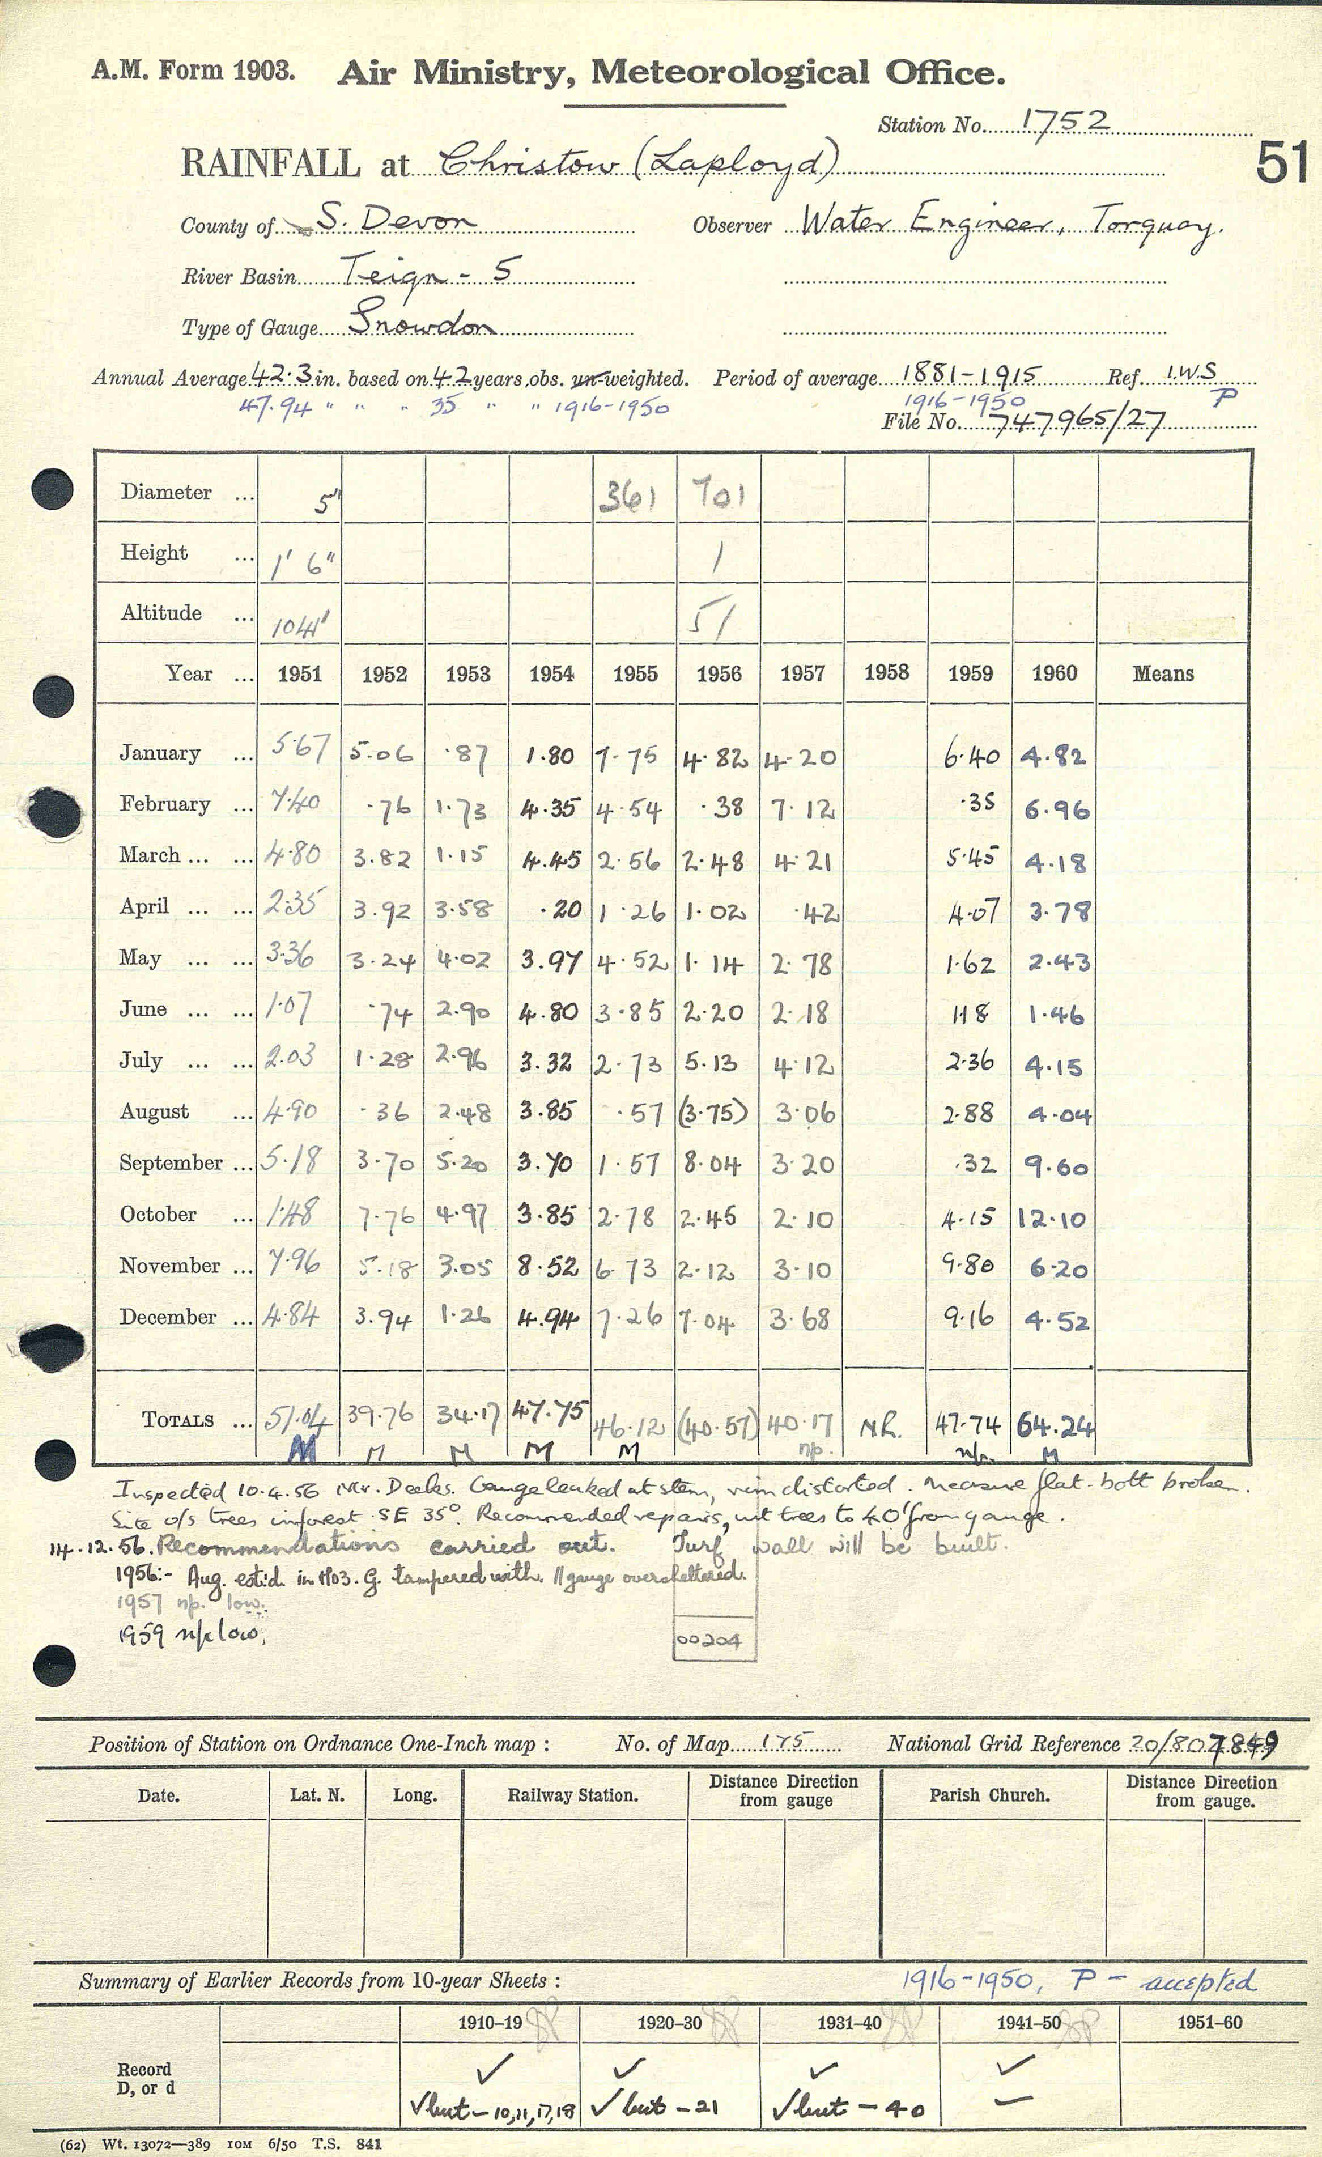 A.M. Form 1903. Air Ministry, Meteorological Office.
Station No. 1752
51
RAINFALL at Christow (Laployd)
County of S. Devon Observer Water Engineer, Torquay.
River Basin Teign - 5
Type of Gauge Snowdon
Annual Average 42.3 in. based on 42 years obs. un-weighted. Period of average 1881-1915 Ref. I.W.S
47.94 " " " 35 " " 1916-1950 1916-1950 P
File No. 747965/27
Diameter ... 5" 361 701
Height ... 1' 6" 1
Altitude ... 1041' 51
Year ... 1951 1952 1953 1954 1955 1956 1957 1958 1959 1960 Means
January ... 5.67 5.06 .87 1.80 7.75 4.82 4.20 6.40 4.82
February ... 7.40 .76 1.73 4.35 4.54 .38 7.12 .35 6.96
March ... ... 4.80 3.82 1.15 4.45 2.56 2.48 4.21 5.45 4.18
April ... ... 2.35 3.92 3.58 .20 1.26 1.02 .42 4.07 3.78
May ... ... 3.36 3.24 4.02 3.97 4.52 1.14 2.78 1.62 2.43
June ... ... 1.07 .74 2.90 4.80 3.85 2.20 2.18 1.18 1.46
July ... ... 2.03 1.28 2.96 3.32 2.73 5.13 4.12 2.36 4.15
August ... 4.90 .36 2.48 3.85 .57 (3.75) 3.06 2.88 4.04
September ... 5.18 3.70 5.20 3.70 1.57 8.04 3.20 .32 9.60
October ... 1.48 7.76 4.97 3.85 2.78 2.45 2.10 4.15 12.10
November ... 7.96 5.18 3.05 8.52 6.73 2.12 3.10 9.80 6.20
December ... 4.84 3.94 1.26 4.94 7.26 7.04 3.68 9.16 4.52
TOTALS ... 51.04 39.76 34.17 47.75 46.12 (40.57) 40.17 N.R. 47.74 64.24
M M M M M np. np. M
Inspected 10.4.56 Mr. Deeks. Gauge leaked at stem, rim distorted. Measure flat-bott broken.
Site o/s trees in forest SE 35°. Recommended repairs, cut trees to 40' from gauge.
14.12.56. Recommendations carried out. Turf wall will be built.
1956:- Aug. estd. in H03. G. tampered with. // gauge oversheltered.
1957 np. low.
1959 np low.
00204
Position of Station on Ordnance One-Inch map : No. of Map 175 National Grid Reference 20/80
Date. Lat. N. Long. Railway Station. Distance Direction from gauge Parish Church. Distance Direction from gauge.
Summary of Earlier Records from 10-year Sheets : 1916-1950, P - accepted
1910-19 1920-30 1931-40 1941-50 1951-60
Record ✓ ✓ ✓ ✓
D, or d ✓ but - 10,11,17,18 ✓ but - 21 ✓ but - 40 —
(62) Wt. 13072—389 10M 6/50 T.S. 841